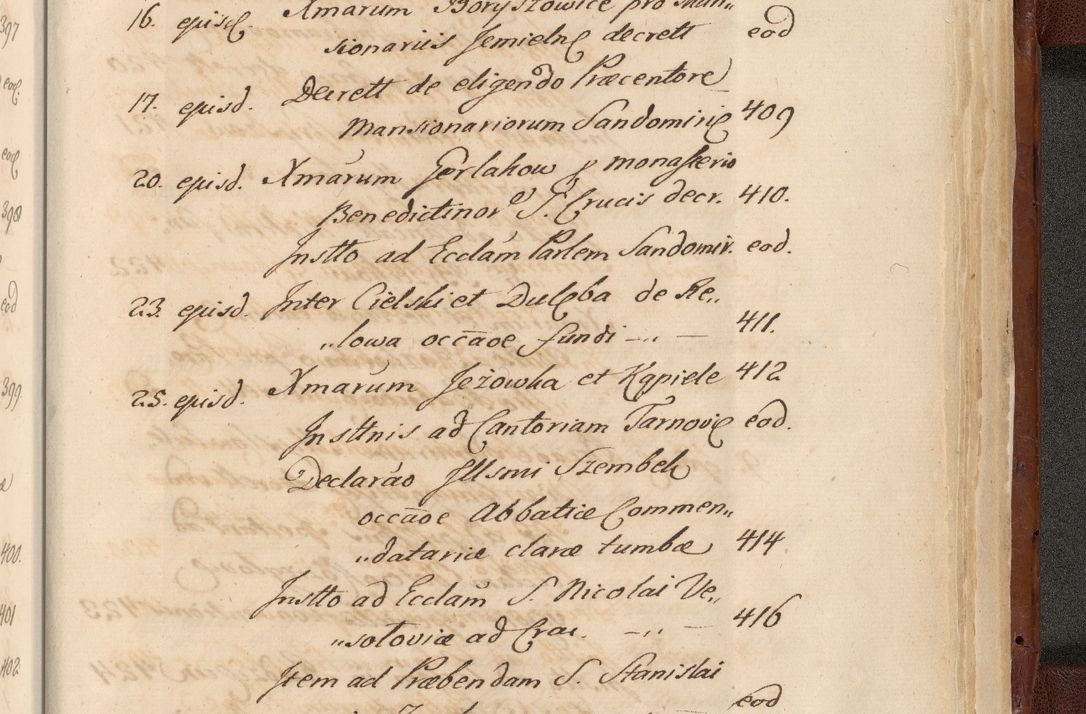 397
eod.
eod
398
eod
399
400.
401
402
16. episd. Xmarum Boryszowice pro Man„
sionariis Jemielnę decrett eod
17. episd. Decrett de eligendo Præcentore
Mansionariorum Sandomirię 409
20. episd. Xmarum Gorlakow p monasterio
Benedictinor S. Crucis decr. 410.
Jnstto ad Ecclam Parlem Sandomir. eod.
23. episd. Jnter Cielski et Dulęba de Re„
„lowa occaōe fundi -„ - 411.
25. episd. Xmarum Jeżowka et Kąpiele 412
Jnsttnis ad Cantoriam Tarnovię eod.
Declarao Jllsmi Szembek
occaōe Abbatiæ Commen„
„datariæ claræ tumbæ 414
Jnstto ad Ecclam S. Nicolai Ve„
„soloviæ ad Crac. -„ - 416
Jtem ad Præbendam S. Stanislai
eod